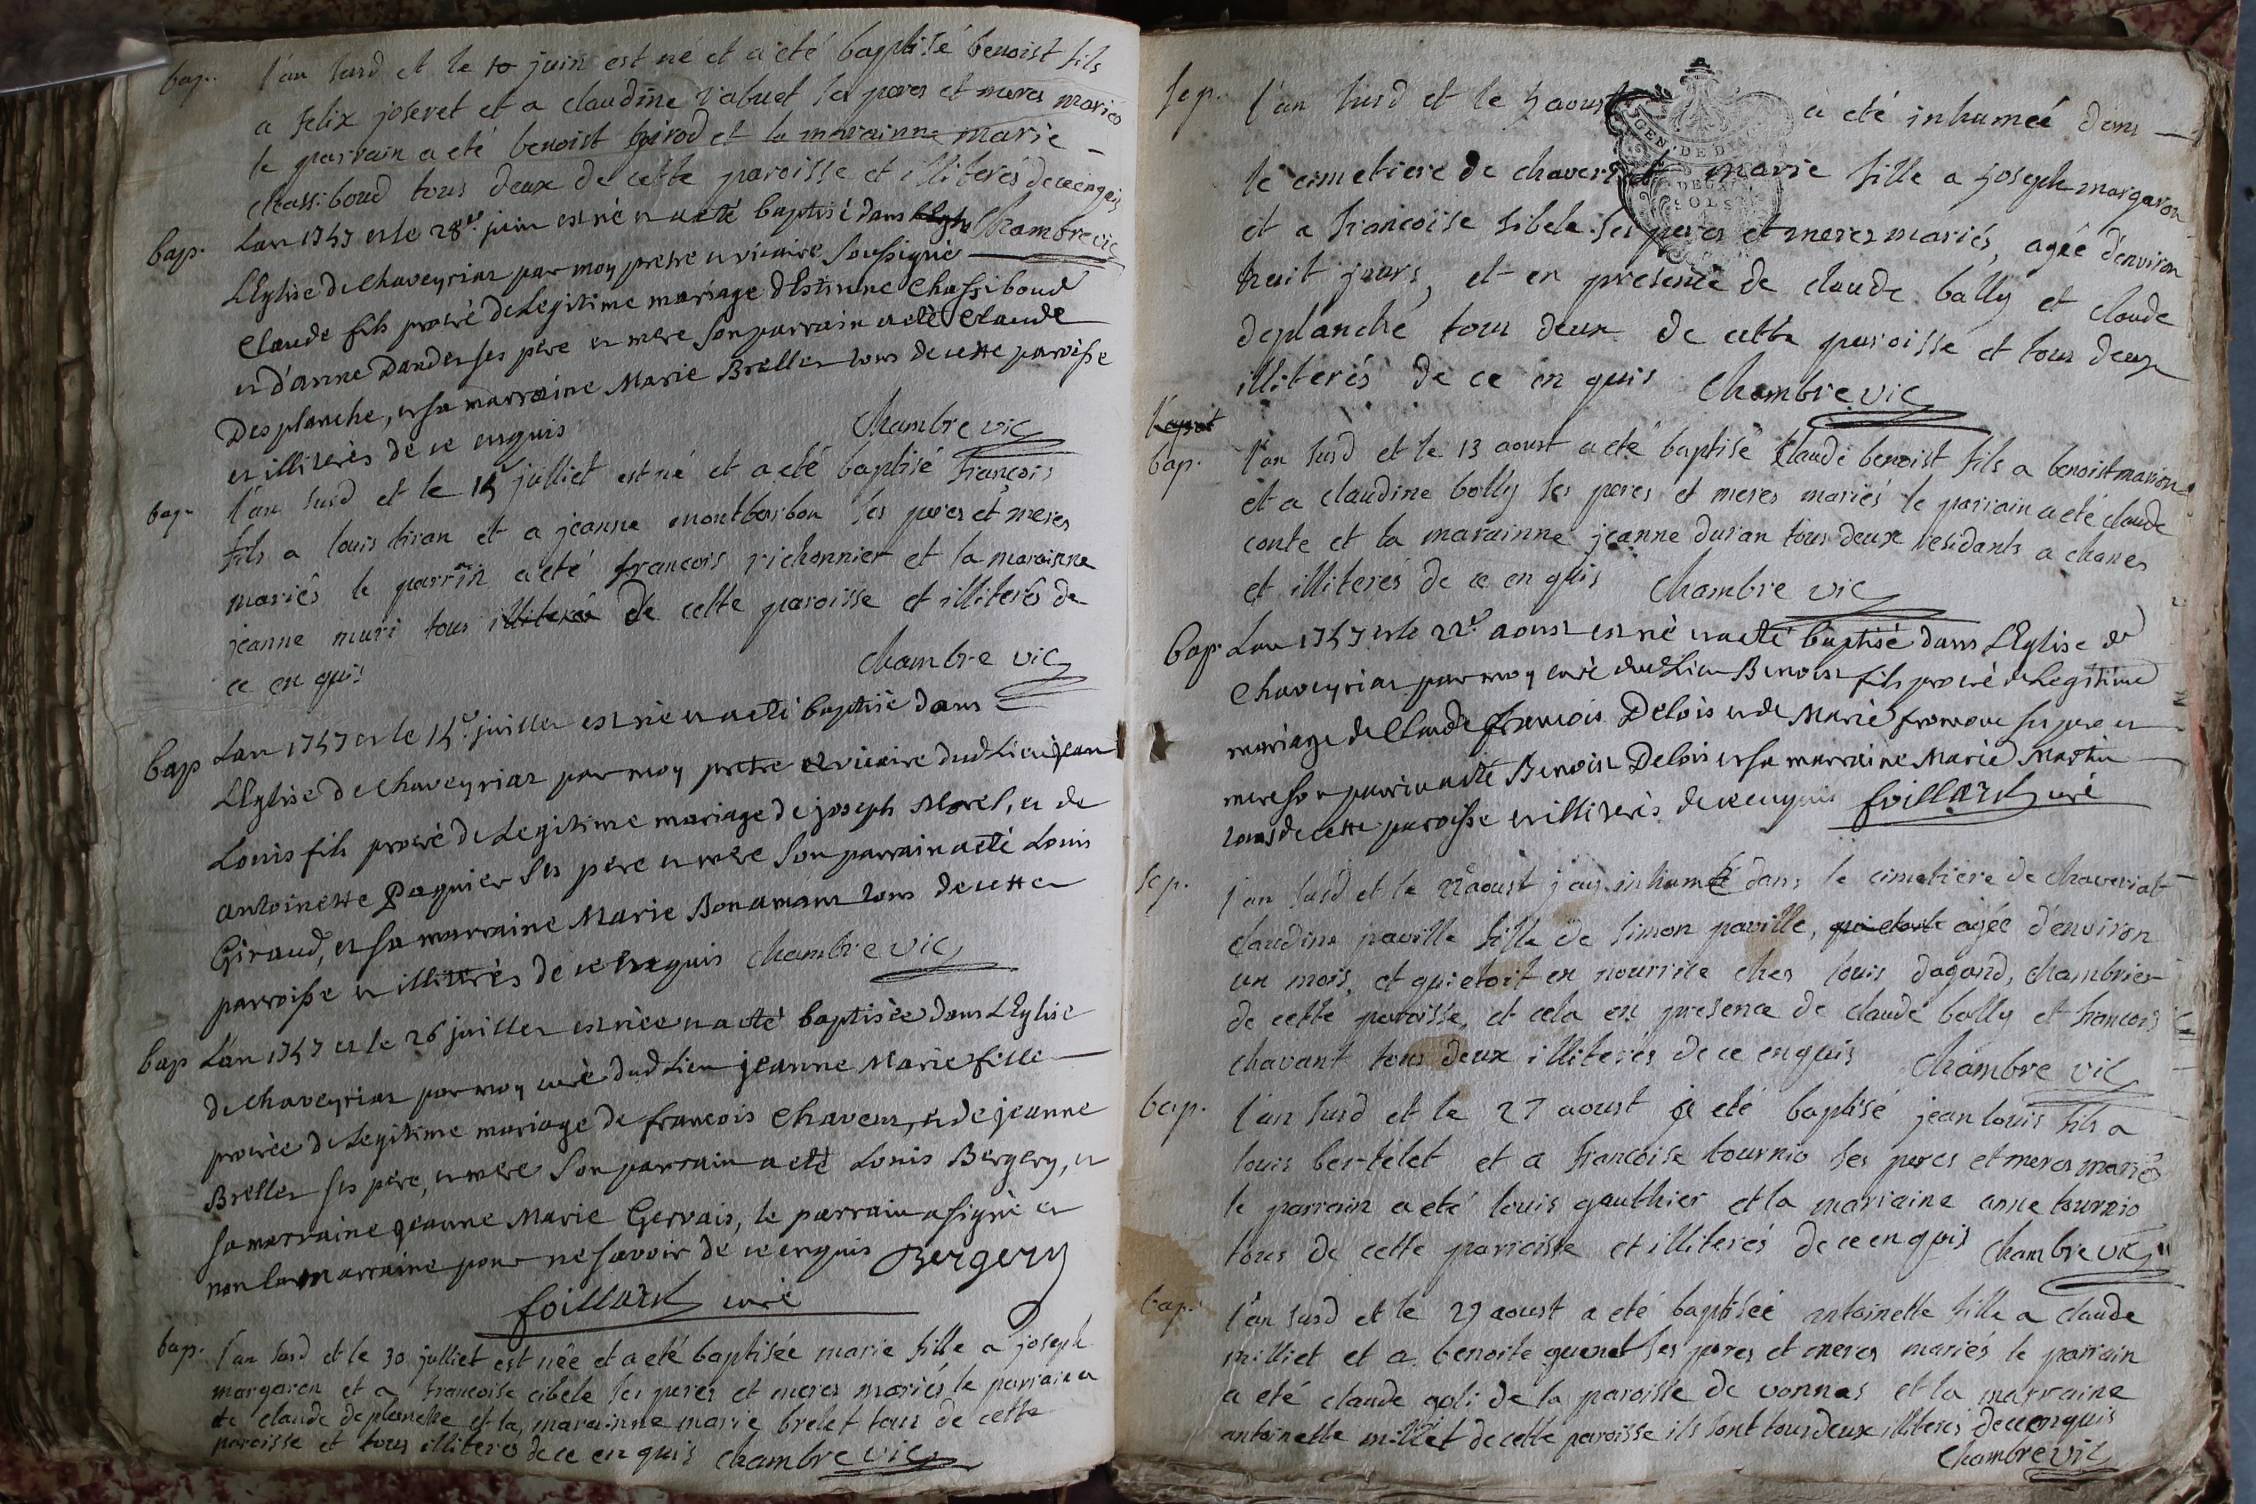 bap. l'an susd et le 10 juin est né et a été baptisé benoist fils
a felix joseret et a claudine rabuet ses peres et meres mariés
le parrain a eté benoist girod et la marainne marie
chassiboud tous deux de cette paroisse et illiterés de ce enquis
Chambre vic
bap. L'an 1747 et le 28e juin est né et a eté baptisé dans
L'Eglise de Chaveyriaz par moy pretre et vicaire soussigné
Claude fils procré de Legitime mariage d'Estienne Chassiboud
et d'anne Dandes ses père et mere son parrain a eté Claude
Desplanche, et sa marraine Marie Brellet tous de cette paroisse
et illiterés de ce enquis
Chambre vic
bap. l'an susd et le 14 julliet est né et a eté baptisé francois
fils a louis tiran et a jeanne montbarbon ses peres et meres
mariés le parrin a eté francois richonnier et la marainne
jeanne muri tous illiterés de cette paroisse et illiterés de
ce en quis
Chambre vic
bap L'an 1747 et le 14e juillet est né et a eté baptisé dans
L'Eglise de Chaveyriaz par moy pretre et vicaire dud Lieu jean
Louis fils procré de Legitime mariage de joseph Morel, et de
antoinette Paquier ses père et mère son parrain a eté Louis
Giraud, et sa marraine Marie Bonamant tous de cette
parroisse et illiterés de ce enquis Chambre vic
bap L'an 1747 et le 26 juillet est née et a eté baptisée dans L'Eglise
de Chaveyriaz par moy curé dud Lieu jeanne Marie fille
procrée de Legitime mariage de francois Chavent, et de jeanne
Brellet ses père, et mere son parrain a eté Louis Bergery, et
sa marraine jeanne Marie Gervais, le parrain a signé et
non la marraine pour ne savoir de ce enquis Bergery
foillard curé
bap. l'an susd et le 30 julliet est née et a eté baptisée marie fille a joseph
margaron et a francoise cibele ses peres et meres mariés le parrain a
été claude deplanche et la marainne marie brelet tous de cette
paroisse et tous illiteres de ce en quis Chambre vic
sep. l'an susd et le 5 aoust a eté inhumeé dans
le cimetiere de chaveriat marie fille a joseph margaron
GEN. DE D
DEUX
SOLS
et a francoise sibele ses peres et meres mariés, ageé d'environ
huit jours, et en presence de claude bolly et claude
deplanche tous deux de cette paroisse et tous deux
illiterés de ce en quis Chambre vic
bap. l'an susd et le 13 aoust a eté baptisé Claude benoist fils a benoist marion
et a claudine bolly ses peres et meres mariés le parrain a eté claude
conte et la marainne jeanne duran tous deux residants a chanes
et illiterés de ce en quis Chambre vic
bap. L'an 1747 et le 22e aoust est né et a eté baptisé dans L'Eglise de
Chaveyriaz par moy curé dud Lieu Benoist fils procré de Legitime
mariage de Claude francois Delois et de Marie fromont ses pere et
mere son parrin a eté Benoist Delois et sa marraine Marie Martin
tous de cette paroisse et illiterés de ce enquis foillard curé
sep. l'an susd et le 22 aoust j'ay inhumé dans le cimetiere de chaveriat
claudine paville fille de simon paville, qui etoit agée d'environ
un mois, et qui etoit en nourrice ches louis dagand, chambrier
de cette paroisse, et cela en presence de claude bolly et francois
chavant tous deux illiterés de ce enquis Chambre vic
bap. l'an susd et le 27 aoust a eté baptisé jean louis fils a
louis bertelet et a francoise tournio ses peres et meres mariés
le parrain a eté louis gauthier et la marraine anne tournio
tous de cette parroisse et illiterés de ce enquis Chambre vic
bap. l'an susd et le 29 aoust a eté baptiseé antoinette fille a claude
milliet et a benoite guenet ses peres et meres mariés le parrain
a eté claude goli de la paroisse de vonnas et la marraine
antoinette milliet de cette paroisse ils sont tous deux illiteres de ce enquis
Chambre vic